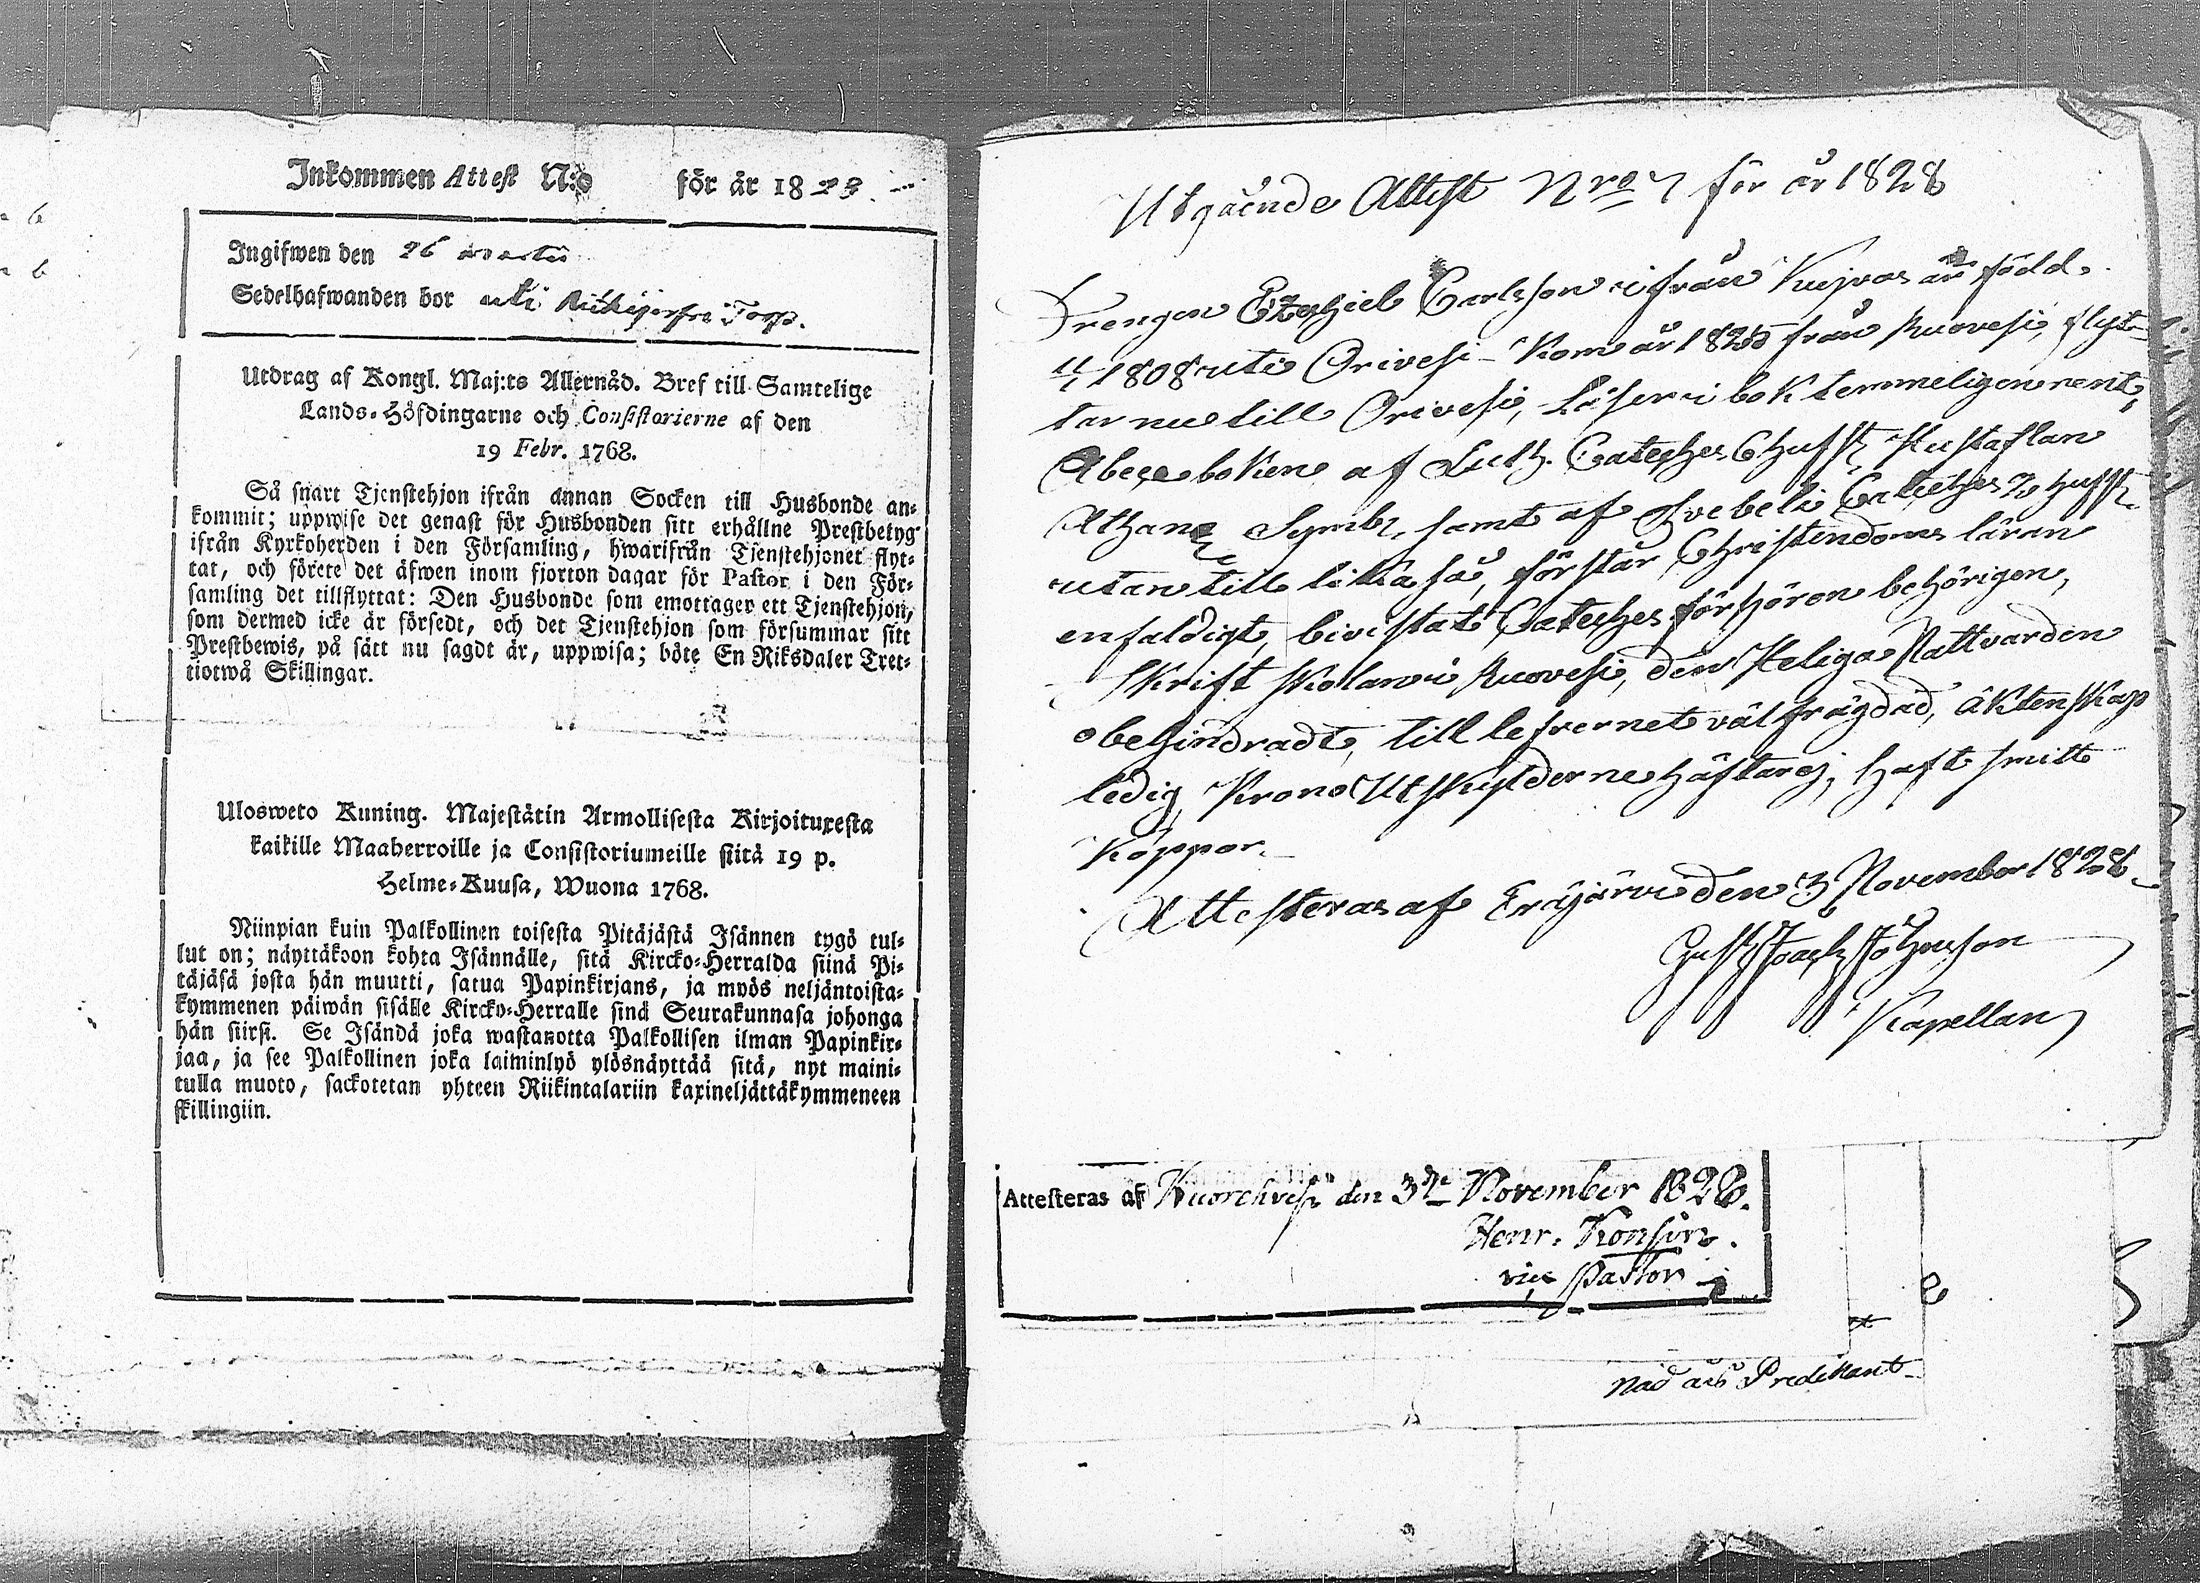 Inkommen Attest N:o för år 18
Ingifwen den 26 martii
Sedelhafwanden bor uti Torp.
Utdrag af Kongl. Maj:ts Allernåd. Bref till Samtelige
Lands-Höfdingarne och Consistorierne af den
19 Febr. 1768.
Så snart Tjenstehjon ifrån annan Socken till Husbonde an-
kommit; uppwise det genast för Husbonden sitt erhållne Prestbetyg
ifrån Kyrkoherden i den Församling, hwarifrån Tjenstehjonet flyt-
tat, och förete det äfwen inom fjorton dagar för Pastor i den För-
samling det tillflyttat: Den Husbonde som emottager ett Tjenstehjon,
som dermed icke är försedt, och det Tjenstehjon som försummar sitt
Prestbewis, på sätt nu sagdt är, uppwisa; böte En Riksdaler Tret-
tiotwå Skillingar.
Ulosweto Kuning. Majestätin Armollisesta Kirjoituxesta
kaikille Maaherroille ja Consistoriumeille siitä 19 p.
Helme-Kuusa, Wuona 1768.
Niinpian kuin Palkollinen toisesta Pitäjästä Isännen tygö tul-
lut on; näyttäkoon kohta Isännälle, sitä Kircko-Herralda siinä Pi-
täjäsä josta hän muutti, satua Papinkirjans, ja myös neljäntoista-
kymmenen päiwän sisälle Kircko-Herralle sinä Seurakunnasa johonga
hän siirsi. Se Isändä joka wastanotta Palkollisen ilman Papinkir-
jaa, ja see Palkollinen joka laiminlyö ylösnäyttää sitä, nyt maini-
tulla muoto, sackotetan yhteen Riikintalariin kaxineljättäkymmeneen
skillingiin.
Utgående Attest Nro 7 för år 1828
Drengen Ezechiel Carlsson ifrån Kujvas är född
1808 uti Orivesi - Kom år 182 från Ruovesi, flyt-
tar nu till Orivesi, Läser i bok temmeligen rent,
Abece boken af Luth. Cateches Hustaflan
Athan Symb, samt af Svebeli Cateches
utantill lika så, förstår Christendoms läran
enfaldigt, bivistat Cateches förhören behörigen,
Skrift skolan i Ruovesi, den Heliga Nattvarden
obehindradt, till lefvernet välfrägdad, äktenskap
ledig, Krono Utskylderne häftar ej, haft smitt
Koppor.
Attesteras af Eräjärvi den 3 November 1828
Johansson
Kapellan
Attesteras af Kuorehvesi den 3de November 1828.
Henr. Konsin.
vice Pastor
Nåd års Predikant